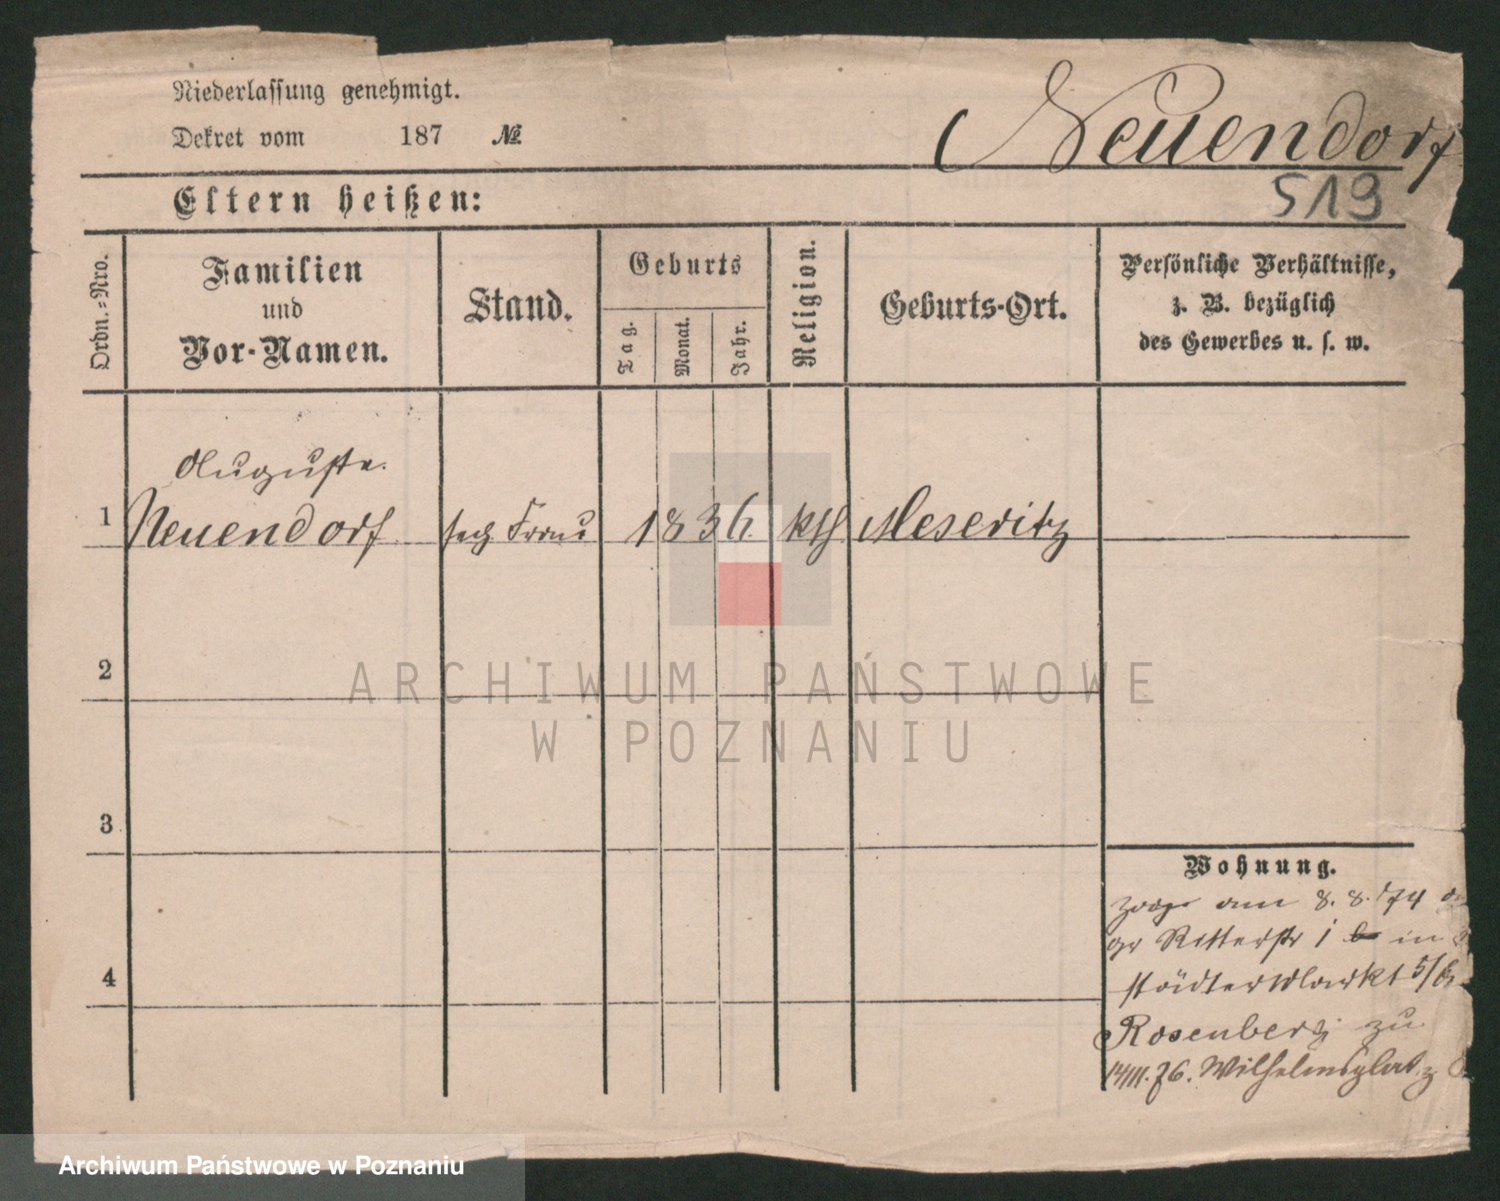 Niederlassung genehmigt.
Dekret vom 187 №
Neuendorf
519
Eltern heißen:
Ordn.-Nro.
Familien
und
Vor-Namen.
Stand.
Geburts
Tag.
Monat.
Jahr.
Religion.
Geburts-Ort.
Persönliche Verhältnisse,
z. B. bezüglich
des Gewerbes u. s. w.
Auguste
1 Neuendorf Frau 1836 kth Meseritz
2
ARCHIWUM PAŃSTWOWE
W POZNANIU
3
Wohnung.
am 8. 8. 74
gr Ritterstr 1 in
städter Markt 5/6
4
Rosenberg zu
14/11. 76. Wilhelmsplatz
Archiwum Państwowe w Poznaniu